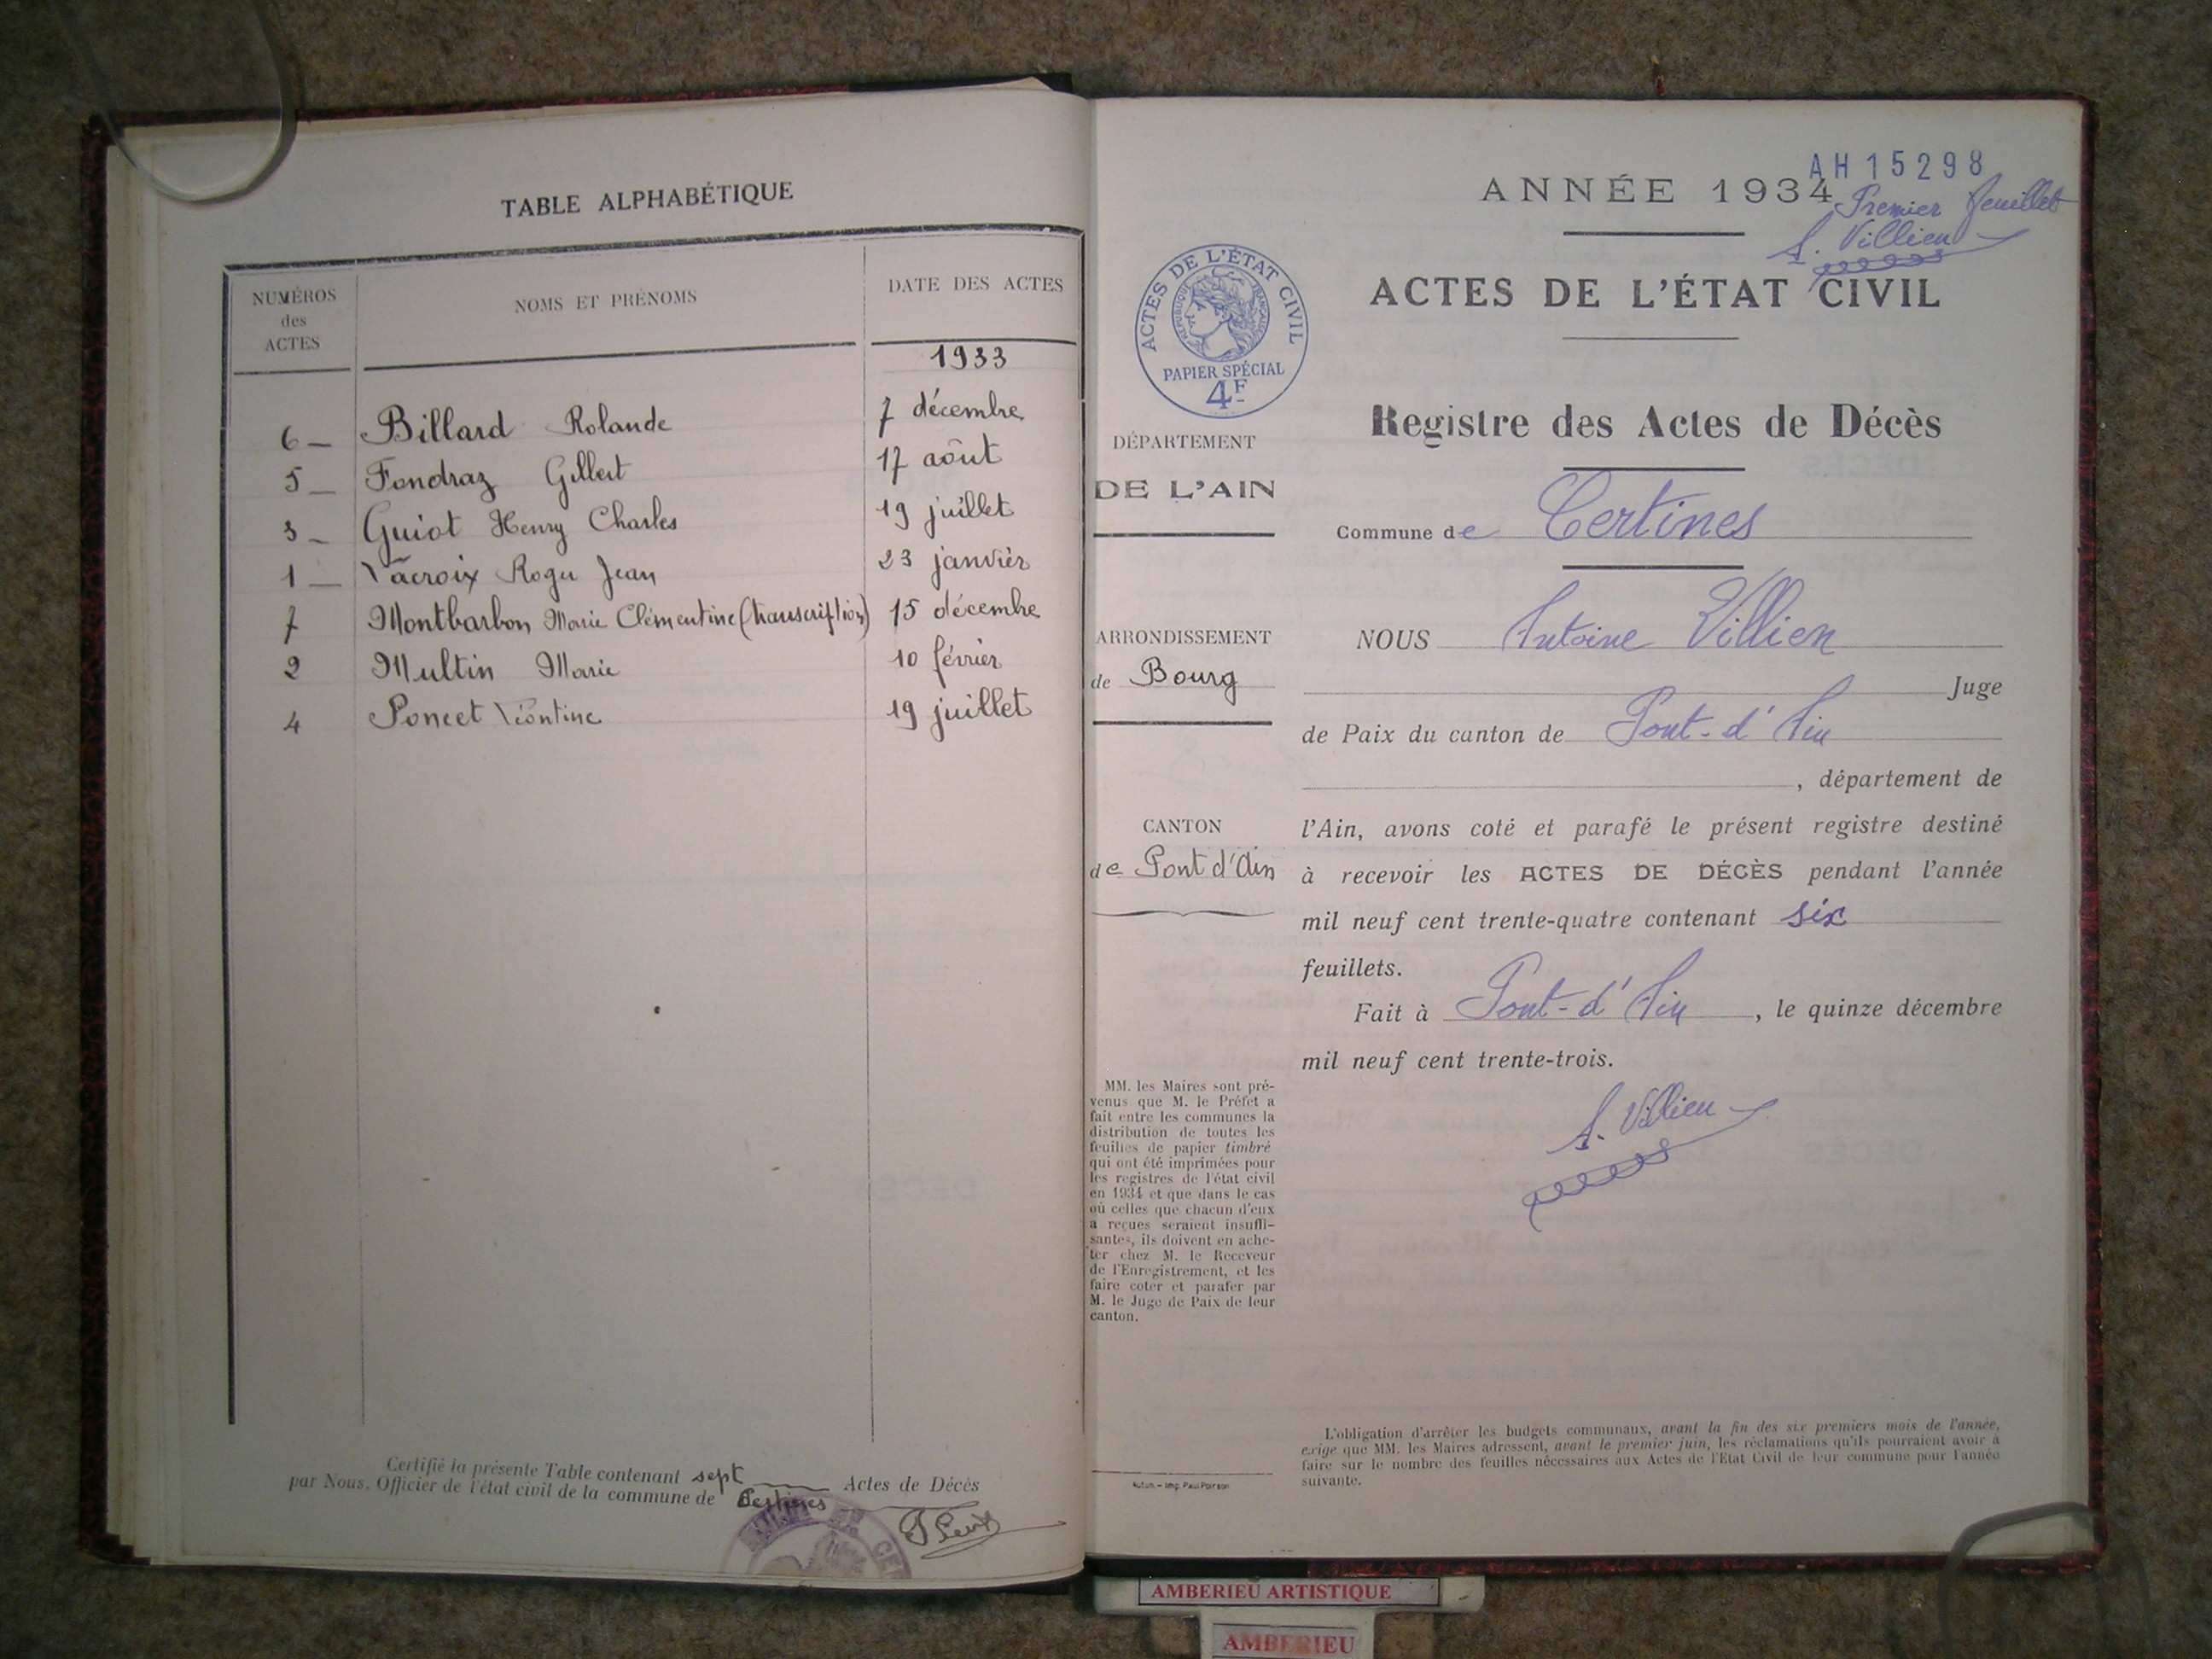 TABLE ALPHABÉTIQUE
NUMÉROS
des
ACTES
NOMS ET PRÉNOMS
DATE DES ACTES
1933
6 — Billard Rolande 7 décembre
5 — Fondraz Gilbert 17 août
3 — Guiot Henry Charles 19 juillet
1 — Lacroix Roger Jean 23 janvier
7 Montbarbon Marie Clémentine (transcription) 15 décembre
2 Multin Marie 10 février
4 Poncet Léontine 19 juillet
Certifié la présente Table contenant sept Actes de Décès
par Nous, Officier de l'état civil de la commune de Certines
AH 15298
ANNÉE 1934
Premier feuillet
A. Villien
ACTES DE L'ÉTAT CIVIL
ACTES DE L'ÉTAT CIVIL
RÉPUBLIQUE FRANÇAISE
PAPIER SPÉCIAL
4F
Registre des Actes de Décès
DÉPARTEMENT
DE L'AIN
Commune de Certines
ARRONDISSEMENT
de Bourg
NOUS Antoine Villien
Juge
de Paix du canton de Pont-d'Ain
, département de
CANTON
de Pont d'Ain
l'Ain, avons coté et parafé le présent registre destiné
à recevoir les ACTES DE DÉCÈS pendant l'année
mil neuf cent trente-quatre contenant six
feuillets.
Fait à Pont-d'Ain, le quinze décembre
mil neuf cent trente-trois.
A. Villien
MM. les Maires sont pré-
venus que M. le Préfet a
fait entre les communes la
distribution de toutes les
feuilles de papier timbré
qui ont été imprimées pour
les registres de l'état civil
en 1934 et que dans le cas
où celles que chacun d'eux
a reçues seraient insuffi-
santes, ils doivent en ache-
ter chez M. le Receveur
de l'Enregistrement, et les
faire coter et parafer par
M. le Juge de Paix de leur
canton.
Autun. — Imp. Paul Poirson
L'obligation d'arrêter les budgets communaux, avant la fin des six premiers mois de l'année,
exige que MM. les Maires adressent, avant le premier juin, les réclamations qu'ils pourraient avoir à
faire sur le nombre des feuilles nécessaires aux Actes de l'Etat Civil de leur commune pour l'année
suivante.
AMBERIEU ARTISTIQUE
AMBERIEU